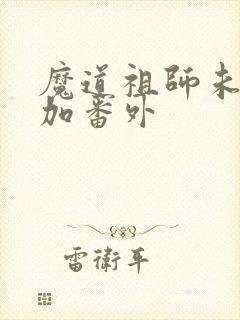 魔道祖師未
加番外
雷衛平